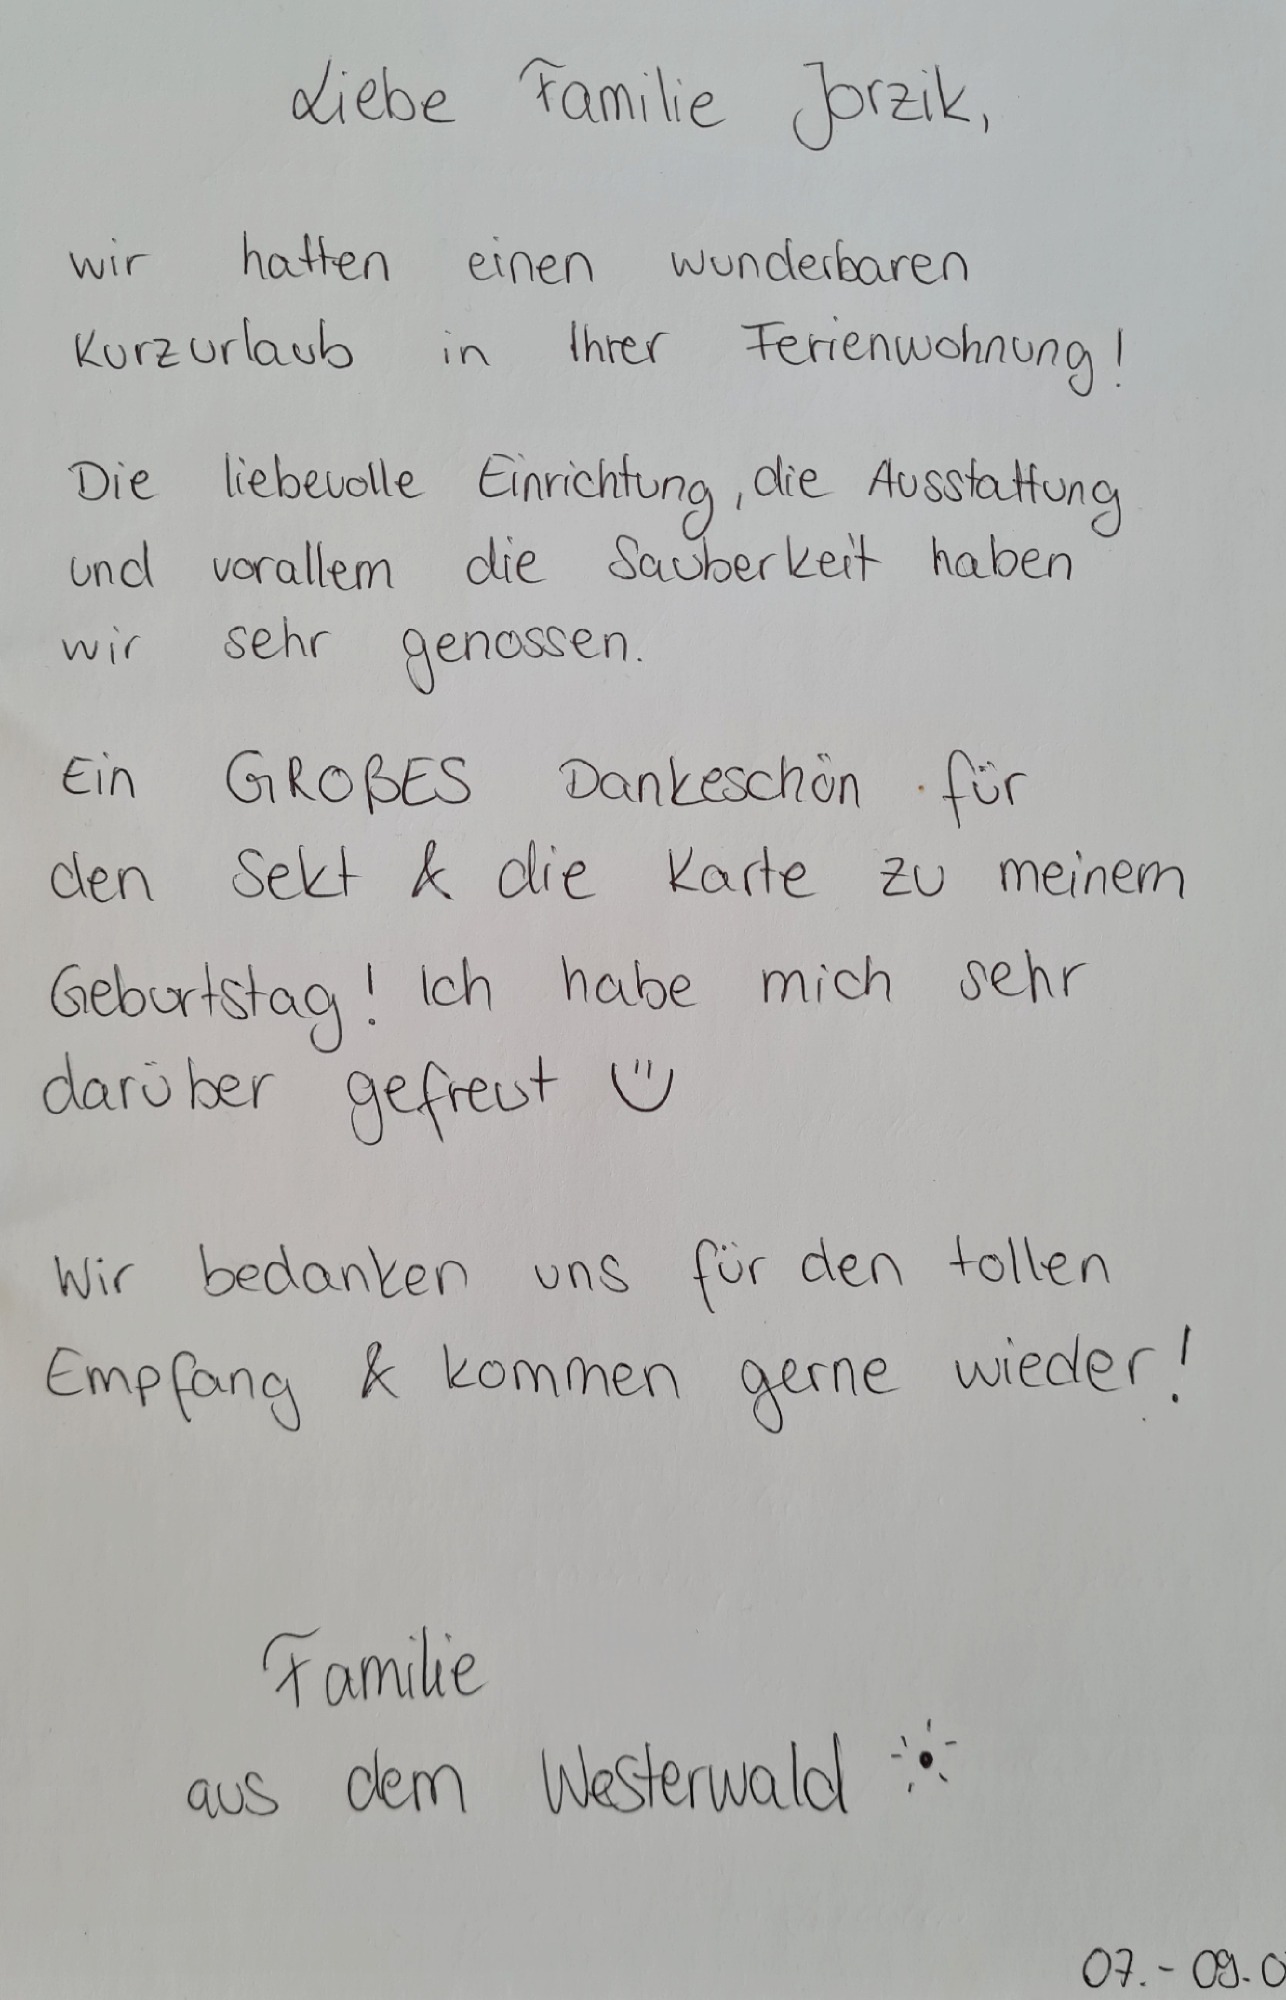 Liebe Familie Jorzik,
wir hatten einen wunderbaren
Kurzurlaub in Ihrer Ferienwohnung!
Die liebevolle Einrichtung, die Ausstattung
und vorallem die Sauberkeit haben
wir sehr genossen.
Ein GROßES Dankeschön für
den Sekt & die Karte zu meinem
Geburtstag! Ich habe mich sehr
darüber gefreut
Wir bedanken uns für den tollen
Empfang & kommen gerne wieder!
Familie
aus dem Westerwald
07.- 09.0